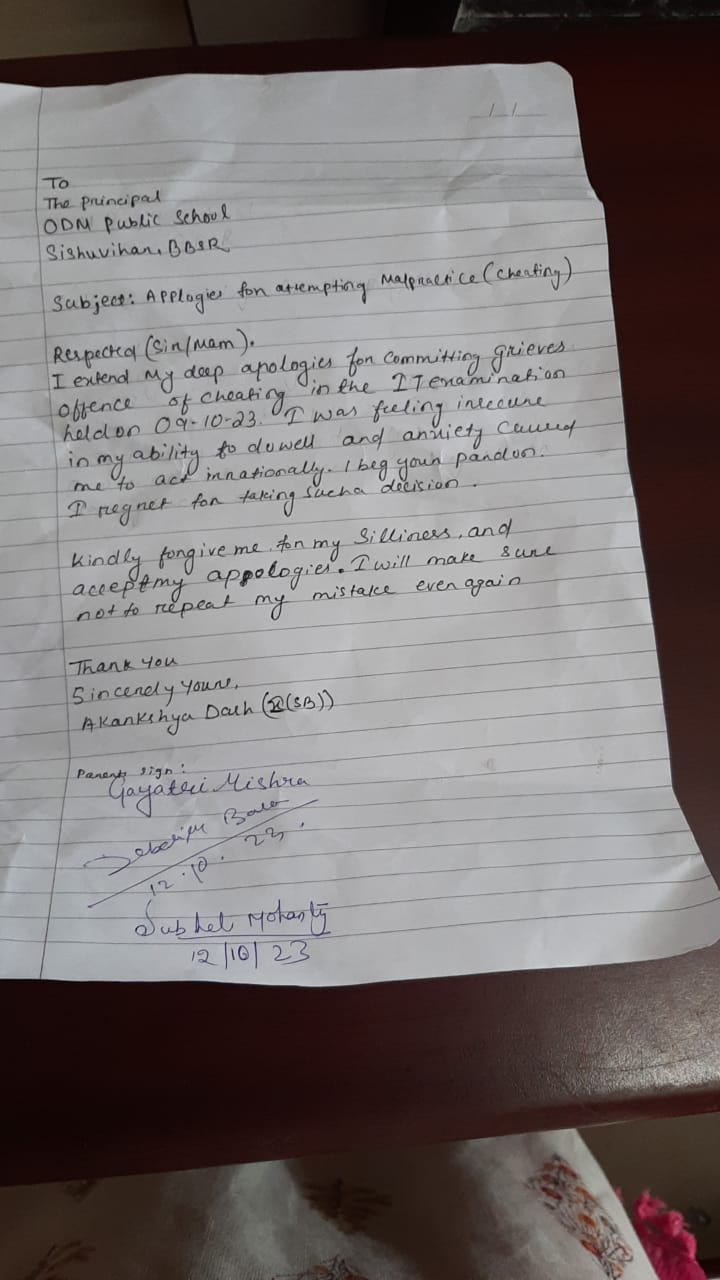 To
The principal
ODM Public School
Sishuvihar, BBSR
Subject: Applogies for attempting Malpractice (cheating)
Respected (Sir/Mam).
I extend my deep apologies for committing grieves
offence of cheating in the IT examination
held on 09-10-23. I was feeling insecure
in my ability to do well and anxiety caused
me to act irrationally. I beg your pardon.
I regret for taking such a decision.
Kindly forgive me for my silliness, and
accept my appologies. I will make sure
not to repeat my mistake ever again
Thank you
Sincerely yours,
Akankshya Dash
Parents sign:
Gayatri Mishra
12.10.23.
Mohanty
12/10/23